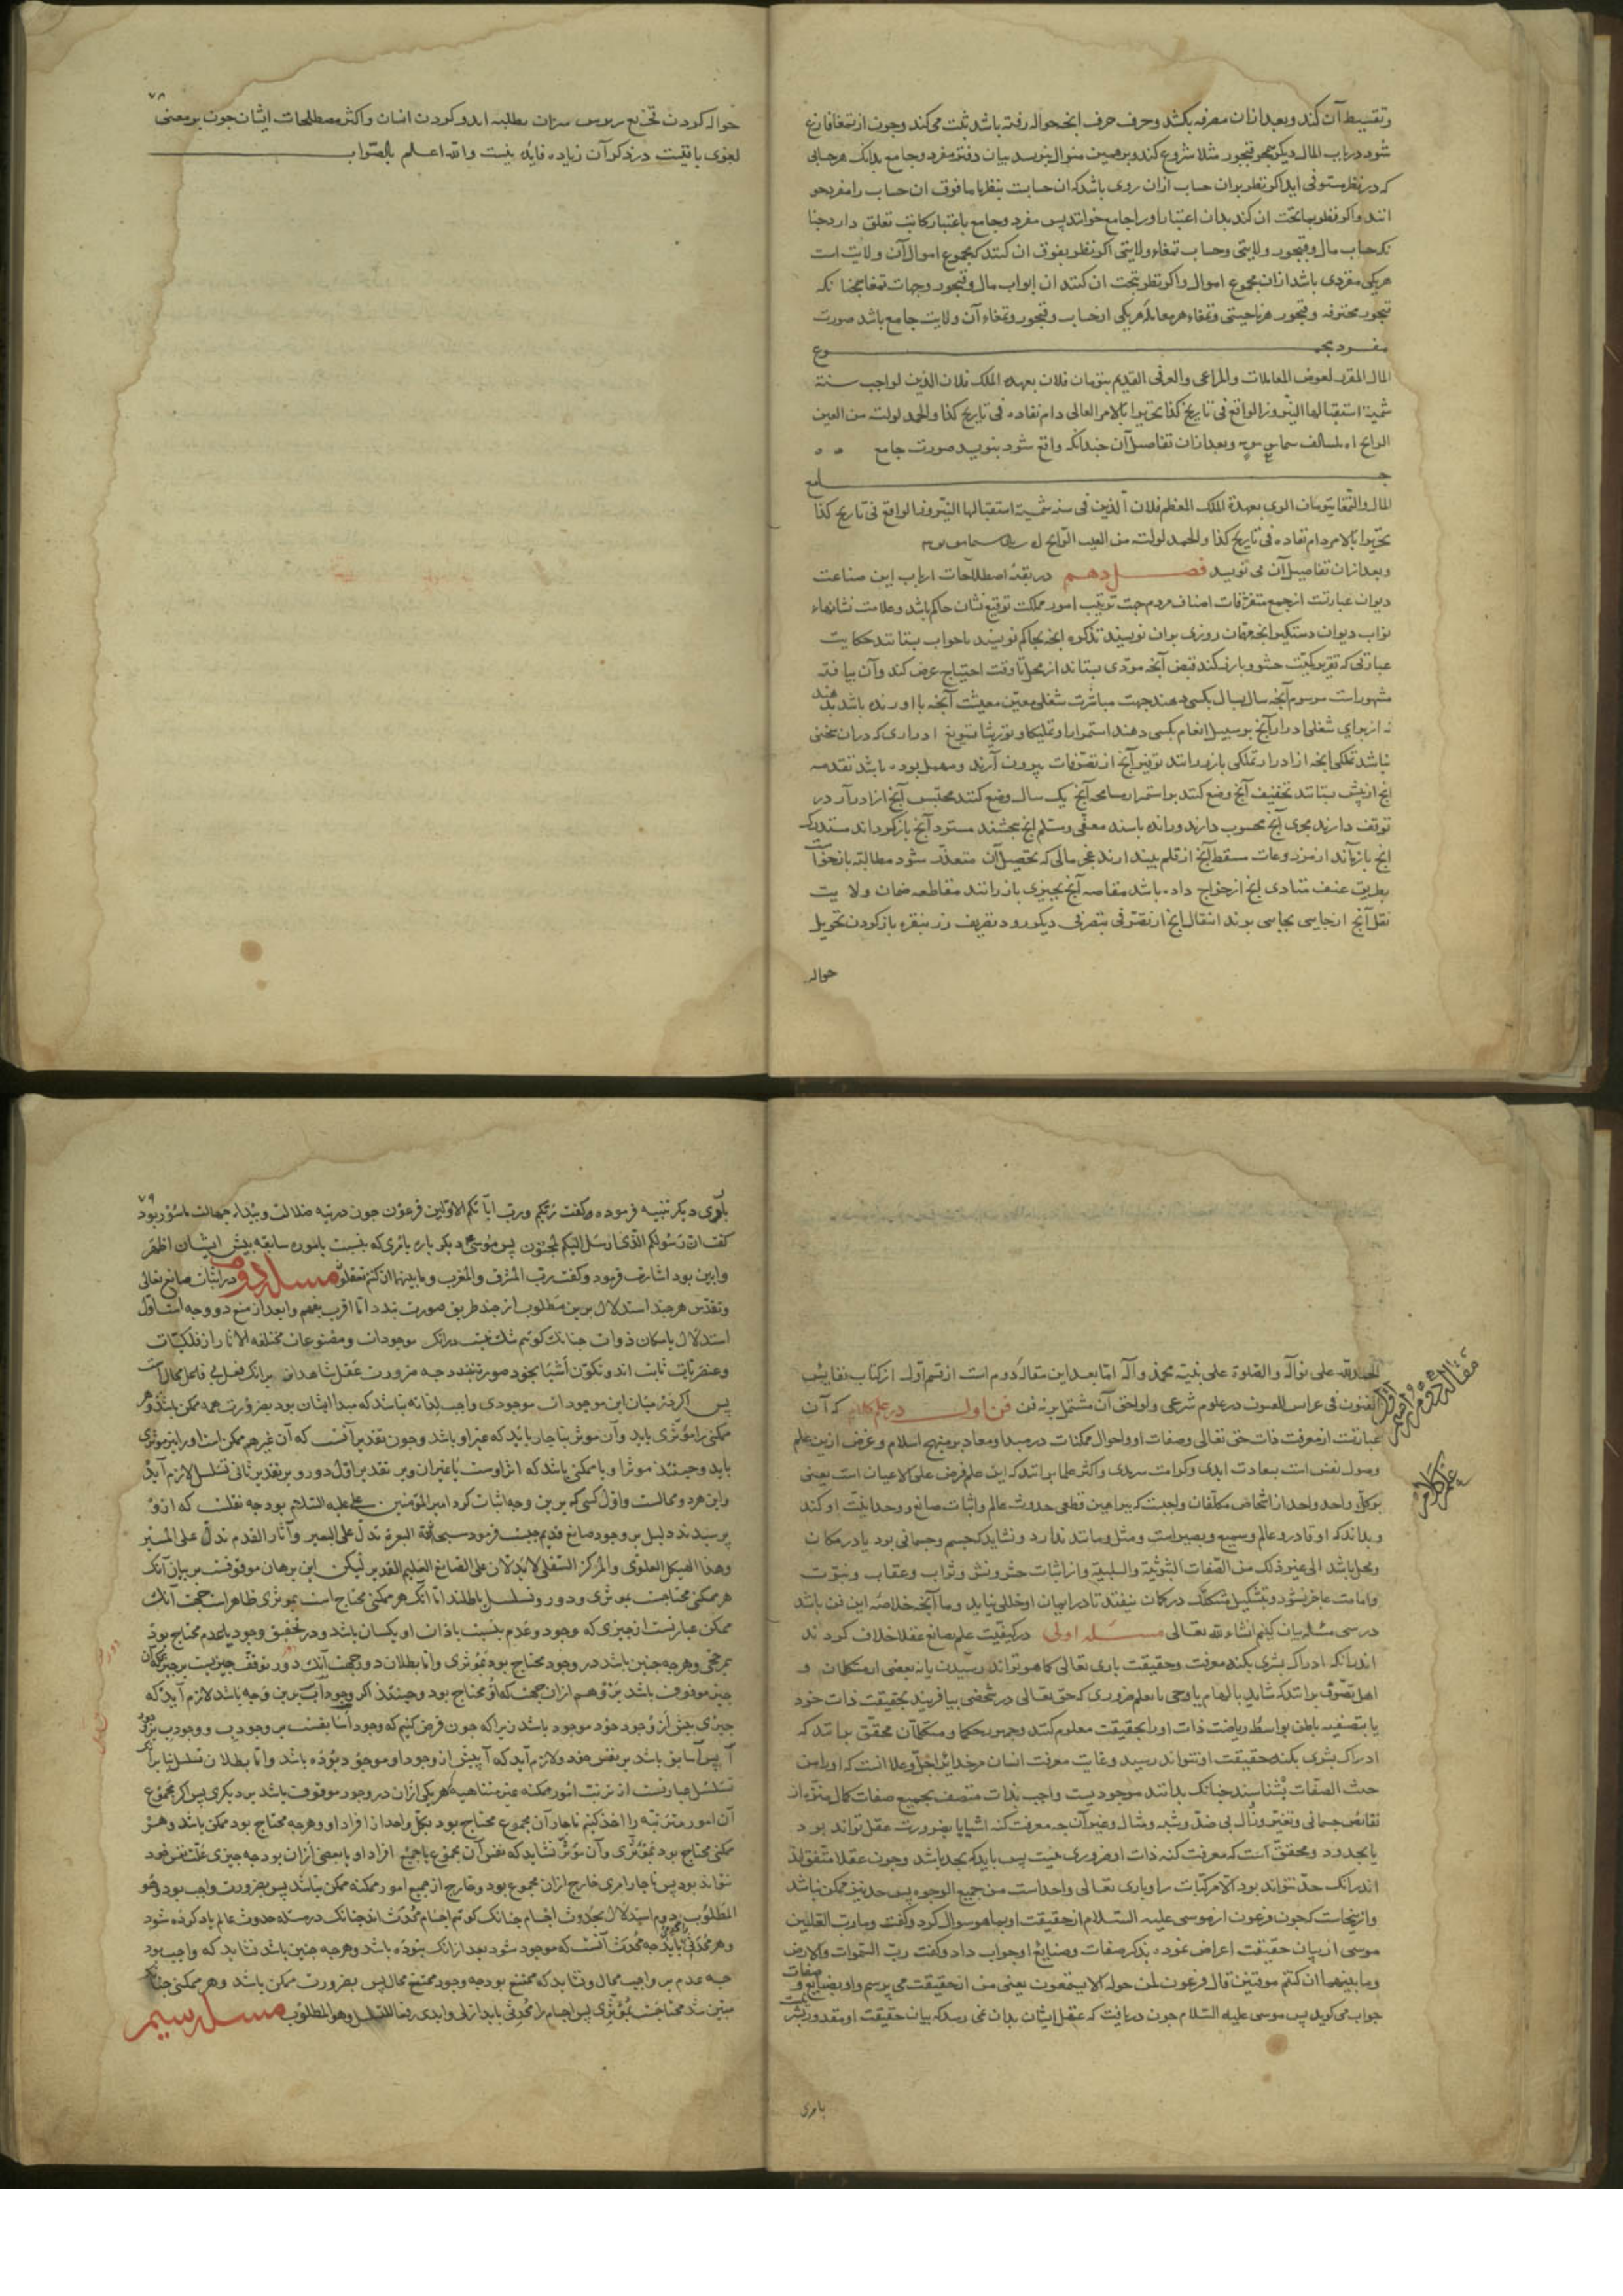 و تقسیط آن کند و بعد از آن مصرفه بکشد و حرف حرف انچه حواله رفته باشد ثبت می کند و چون از تمغا فارغ
شود در باب المال دیکر همچو قبجور مثلا شروع کند و برهمین منوال بنویسد بیان دفتر مفرد و جامع بدانک هر حسابی
که در نظر مستوفی اید اکر نظر بران حساب ازان روی باشد که ان حسابت بنظر با ما فوق ان حساب را مفرد خو
انند و اکر نظر بما تحت ان کند بدان اعتبار او را جامع خوانند پس مفرد و جامع باعتبار کاتب تعلق دارد چنا
نکه حساب مال و قبجور ولایتی و حساب تمغاء ولایتی اکر نظر بفوق ان کنند که مجموع اموال آن ولایت است
هر یکی مفردی باشد ازان مجموع اموال و اکر نظر بتحت ان کنند ان ابواب مال و قبجور و جهات تمغا همچنانکه
قبجور محترفه و قبجور هر ناحیتی و تمغاء هر معامله هر یکی از حساب و قبجور و تمغاء آن ولایت جامع باشد صورت
مفرد مجموع
المال المقرر لعوض المعاملات والمراعی والعرفی القدیم بتومان فلان بعهده الملک فلان الدین لواجب سنة
شمسیة استقبالها النیروز الواقع فی تاریخ کذا تحریرا بالامر العالی دام نفاده فی تاریخ کذا والحمد لولیه من العین
الرایج وبعد ازان تفاصیل آن چندانکه واقع شود بنویسد صورت جامع
جامع
المال والتمغا بتومان الری بعهدة الملک المعظم فلان الدین فی سنه شمسیة استقبالها النیروز الواقع فی تاریخ کذا
تحریرا بالامر دام نفاده فی تاریخ کذا والحمد لولیه من العین الرایج
و بعد ازان تفاصیل آن می نویسد فصل دهم در بقیّه اصطلاحات ارباب این صناعت
دیوان عبارتست از جمع متفرقات اصناف مردم جهت ترتیب امور مملکت توقیع نشان حاکم باشد و علامت نشانهاء
نواب دیوان دستکیر انچه مهمات روزی بران نویسند تذکره انچه بحاکم نویسند تا جواب بستانند حکایت
عبارتی که تقریر کمیّت حشو و بارز کند قبض آنچه مودی بستاند از محل تا وقت احتیاج عرض کند و آن بیافته
مشهور است مرسوم آنچه سال بسال بکسی دهند جهت مباشرت شغلی معیّن معیشت آنچه با او رنده باشد بدهند
نه از برای شغلی ادرار آنچ بر سبیل انعام بکسی دهند استمرارا و تملیکا و توریثا تسویغ ادراری که در ان
نباشد تملکی انچه از ادرار تملکی باز رانند توفیر آنچ از تصرّفات بیرون آرند و مهمل بوده باشد تقدمه
انچ از پیش بستانند تخفیف آنچ وضع کنند بر استمرار مسامحه آنچ یک سال وضع کنند محتبس آنچ از ادرار در
توقف دارند مجری آنچ محسوب دارند و رانده باشند معفی و مسلم انچ بخشند مسترد آنچ باز کرداند مستدرک
انچ باز یابند از مزروعات مسقط آنچ از قلم بیندازند عجز مالی که تحصیل آن متعذّر شود مطالبه
بطریق عنف متنادی انچ از خراج داده باشد مقاصه آنچ بچیزی باز رانند مقاطعه ضمان ولایت
نقل آنچ از جایی بجایی برند انتقال انچ از تصرّفی بتصرفی دیکر رود تصریف زر بنقره باز کردن تحویل
حواله
٧٨
حواله کردن واکثر مصطلحات ایشان چون بر معنی
لغوی باقیست در ذکر آن زیاده فایده نیست والله اعلم بالصواب
مقاله دوم از قسم اوّل
در علم کلام
الحمدلله علی نواله والصلوة علی نبیّه محمد وآله امّا بعد این مقاله دوم است از قسم اوّل از کتاب نفایس
الفنون فی عرایس العیون در علوم شرعی ولواحق آن مشتمل بر نه فن فن اول در علم کلام که آن
عبارتست از معرفت ذات حق تعالی وصفات او واحوال ممکنات در مبدا و معاد بر منهج اسلام وغرض ازین علم
وصول نفس است بسعادت ابدی وکرامت سرمدی واکثر علما بر انند که این علم فرض علی الاعیان است یعنی
بر کل واحد واحد از اشخاص مکلّفان واجبست که ببراهین قطعی حدوث عالم واثبات صانع و وحدانیّت او کند
و بداند که او قادر و عالم و سمیع و بصیر است و مثل و مانند ندارد و نشاید که جسم و جسمانی بود یا در مکان
و محل باشد الی غیر ذلک من الصّفات الثبوتیّة والسلبیّة واز اثبات حشر ونشر وثواب وعقاب ونبوّت
وامامت عاجز نشود و بتشکیک مشکک در کمان نیفتد تا در ایمان او خللی نیاید و ما آنچه خلاصه این فن باشد
در سی مسئله بیان کنیم انشاء الله تعالی مسئله اولی در کیفیّت علم بصانع عقلا خلاف کرده اند
اندر آنکه ادراک بشری بکنه معرفت و حقیقت باری تعالی کما هو تواند رسیدن یا نه بعضی از متکلمان و
اهل تصوّف بر انند که شاید بالهام یا وحی یا بعلم ضروری که حق تعالی در شخصی بیافریند بحقیقت ذات خود
یا بتصفیه باطن بواسطه ریاضت ذات او را بحقیقت معلوم کنند وجمهور حکما و متکلمان محقّق بر انند که
ادراک بشری بکنه حقیقت او نتواند رسید وغایت معرفت انسان مر خدایرا جلّ وعلا انست که او را من
حیث الصفات بشناسند چنانک بدانند موجودیست واجب بذات متصف بجمیع صفات کمال منزّه از
نقایص جسمانی وتغیّر و زوال بی ضدّ و شبه و مثال وغیر آن چه معرفت کنه اشیا یا بضرورت عقل تواند بود
یا بحد و رسم و محقّق است که معرفت کنه ذات او ضروری نیست پس باید که بحد باشد وچون عقلا متفق اند
اندر آنک حدّ نتواند بود الا مرکبات را و باری تعالی واحداست من جمیع الوجوه پس حد نیز ممکن نباشد
وازینجاست که چون فرعون از موسی علیه السّلام از حقیقت او بما هو سوال کرد وکفت وما رب العالمین
موسی از بیان حقیقت اعراض نموده بذکر صفات وصنایع او جواب داد وکفت ربّ السّموات والارض
وما بینهما ان کنتم موقنین قال فرعون لمن حوله الا تستمعون یعنی من از حقیقت می پرسم و او بصفات و
جواب می کوید پس موسی علیه السّلام چون دریافت که عقل ایشان بدان نمی رسد که بیان حقیقت او مقدور بشر نیست
بامری
٧٩
بامری دیکر تنبیه فرموده و کفت ربّکم وربّ آبائکم الاوّلین فرعون چون در تیه ضلالت وبیداء جهالت ماسور بود
کفت انّ رسولکم الّذی ارسل الیکم لمجنون پس موسی دیکر باره بامری که بنسبت با موره سابقه پیش ایشان اظهر
وابین بود اشارت فرمود وکفت ربّ المشرق والمغرب وما بینهما ان کنتم تعقلون مسئله دوم در اثبات صانع تعالی
وتقدّس هر چند استدلال برین مطلوب از چند طریق صورت بندد امّا اقرب بفهم وابعد از منع دو وجه است اوّل
استدلال بامکان ذوات چنانک کوئیم شک نیست در انک موجودات ومصنوعات مختلفة الاثار از فلکیّات
وعنصریّات ثابت اند وتکوّن اشیا بخود صورت نبندد چه ضرورت عقل شاهداست بر انک فعل بی فاعل محالست
پس اکر نه میان این موجودات موجودی واجب لذاته باشد که مبدا ایشان بود بضرورت همه ممکن باشند وهر
ممکنی را مؤثّری باید وآن موثر بناچار باید که غیر او باشد وچون بقدیر آنست که آن غیر هم ممکن است او را نیز موثری
باید وحینئذ موثر او یا ممکنی باشد که اثر اوست یا غیر ان وبر تقدیر اوّل دور وبر تقدیر ثانی تسلسل لازم آید
واین هر دو محالست واوّل کسی که برین وجه اثبات کرد امیر المؤمنین علی علیه السّلام بود چه نقلست که ازو
پرسیدند دلیل بر وجود صانع قدیم چیست فرمود سبحان الله البعرة تدلّ علی البعیر وآثار القدم تدلّ علی المسیر
وهذا الهیکل العلوی والمرکز السفلی لایدلّان علی الصّانع العلیم القدیر لیکن این برهان موقوفست بر بیان آنک
هر ممکنی محتاجست بموثری ودور وتسلسل باطلند امّا آنک هر ممکنی محتاج است بموثری ظاهر است جهت آنک
ممکن عبارتست از چیزی که وجود وعدم بنسبت با ذات او یکسان باشد و در تحقیق وجود یا عدم محتاج بود
بمرجّحی وهرچه چنین باشد در وجود محتاج بود بموثری وامّا بطلان دور جهت آنک دور توقف چیزیست بر چیزی که آن
چیز موقوف باشد برو هم ازان جهت که او محتاج بود وحینئذ اکر وجود آ ب برین وجه باشد لازم آید که
چیزی پیش از وجود خود موجود باشد زیرا که چون فرض کنیم که وجود آ سابقست بر وجود ب و وجود ب بر وجود
آ پس آ سابق باشد بر نفس خود ولازم آید که آ پیش از وجود او موجود بوده باشد وامّا بطلان تسلسل بنا بر آنک
تسلسل عبارتست از ترتّب امور ممکنه غیر متناهیة که هر یکی ازان در وجود موقوف باشد بر دیکری پس اکر مجموع
آن امور مترتبه را اخذ کنیم ناچار آن مجموع محتاج بود بکل واحد از افراد او وهرچه محتاج بود ممکن باشد وهر
ممکنی محتاج بود بموثّری وآن موثر نشاید که نفس آن مجموع یا جمیع افراد او یا بعضی ازان بود چه چیزی علّت نفس خود
نتواند بود پس ناچار امری خارج ازان مجموع بود وخارج از جمیع امور ممکنه ممکن نباشد پس بضرورت واجب بود وهو
المطلوب دوم استدلال بحدوث اجسام چنانک کوئیم اجسام محدث اند چنانک در مسئله حدوث عالم یاد کرده شود
وهر محدثی را محدثی باید چه محدث آنست که موجود شود بعد ازانک نبوده باشد وهرچه چنین باشد نشاید که واجب بود
چه عدم بر واجب محال ونشاید که ممتنع بود چه وجود ممتنع محال پس بضرورت ممکن باشد وهر ممکنی چنانک
مبیّن شد محتاجست بموثّری پس اجسام را محدثی باید ازلی وابدی دفعا للتسلسل وهو المطلوب مسئله سیم